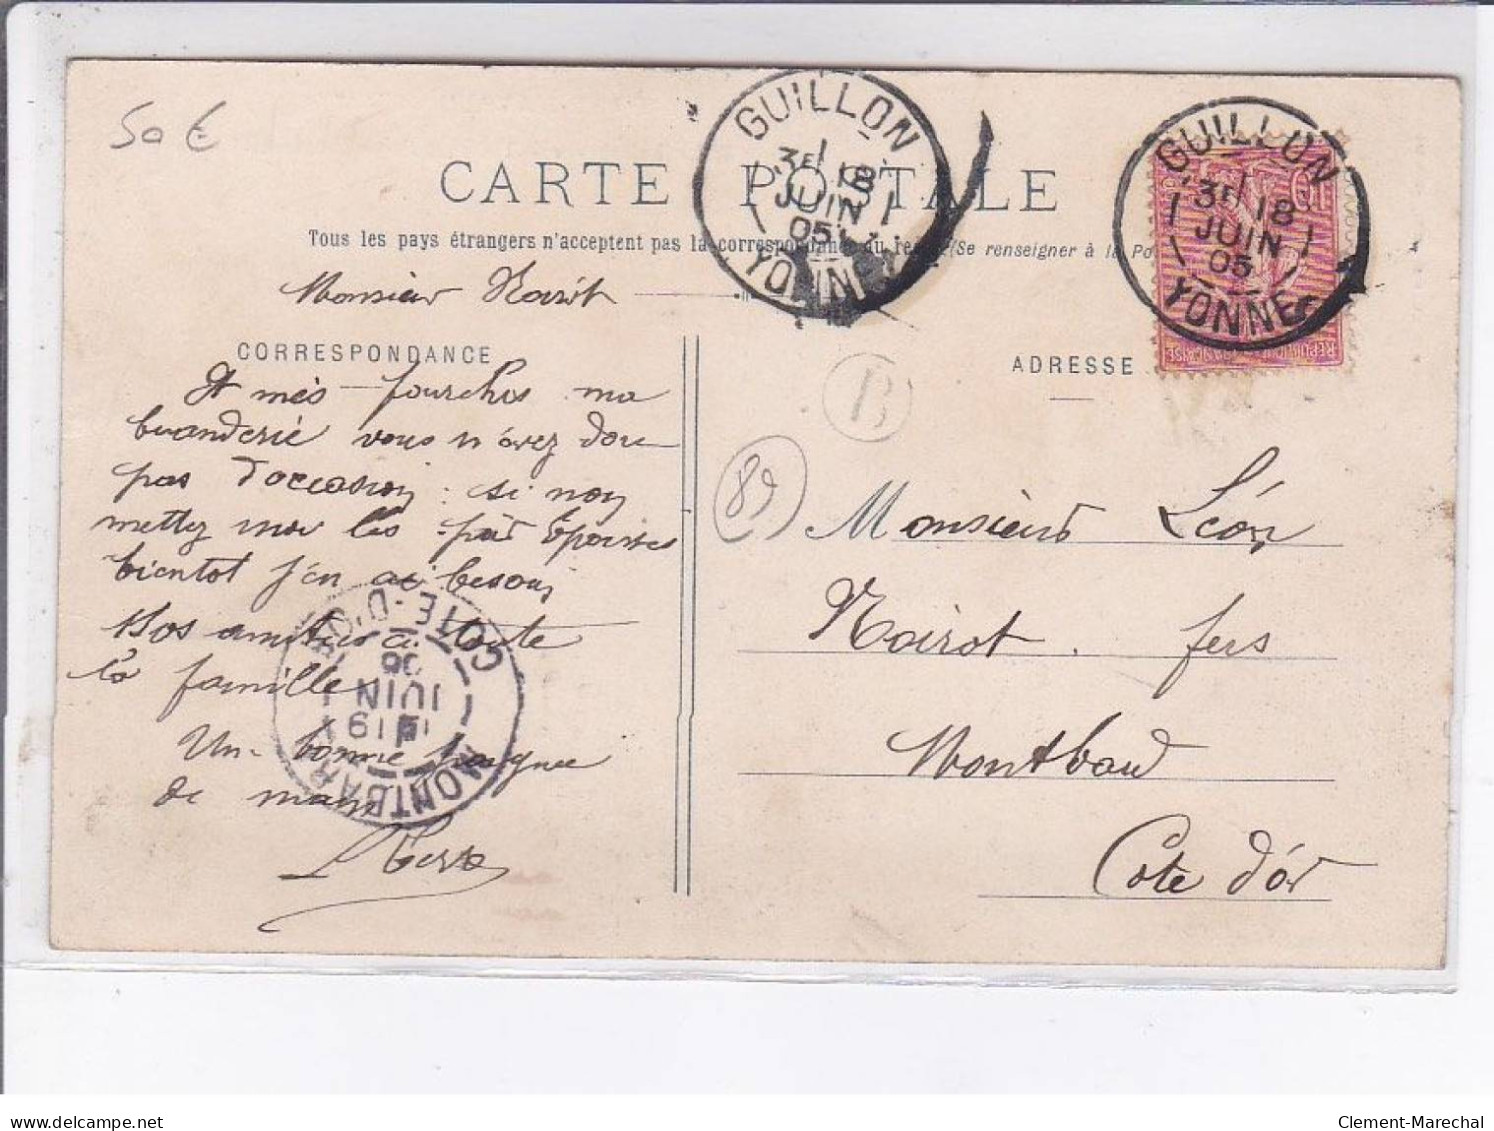 50 €
CARTE POSTALE
Tous les pays étrangers n'acceptent pas la correspondance au recto (Se renseigner à la Po
GUILLON
3E 18
JUIN
05
YONNE
GUILLON
3E 18
JUIN
05
YONNE
RÉPUBLIQUE FRANÇAISE
Monsieur Noirot
CORRESPONDANCE
ADRESSE
Et mes fourches ma
buanderie vous n'avez donc
pas d'occasion. si non
mettez moi les par Epoisses
bientot j'en ai besoin
Nos amitiés a toute
la famille
Un bonne poignée
de main
B
89
Monsieur Léon
Noirot fers
Montbard
Côte d'or
MONTBARD
19
JUIN
05
CÔTE-D'OR
delcampe.net
Clement-Marechal